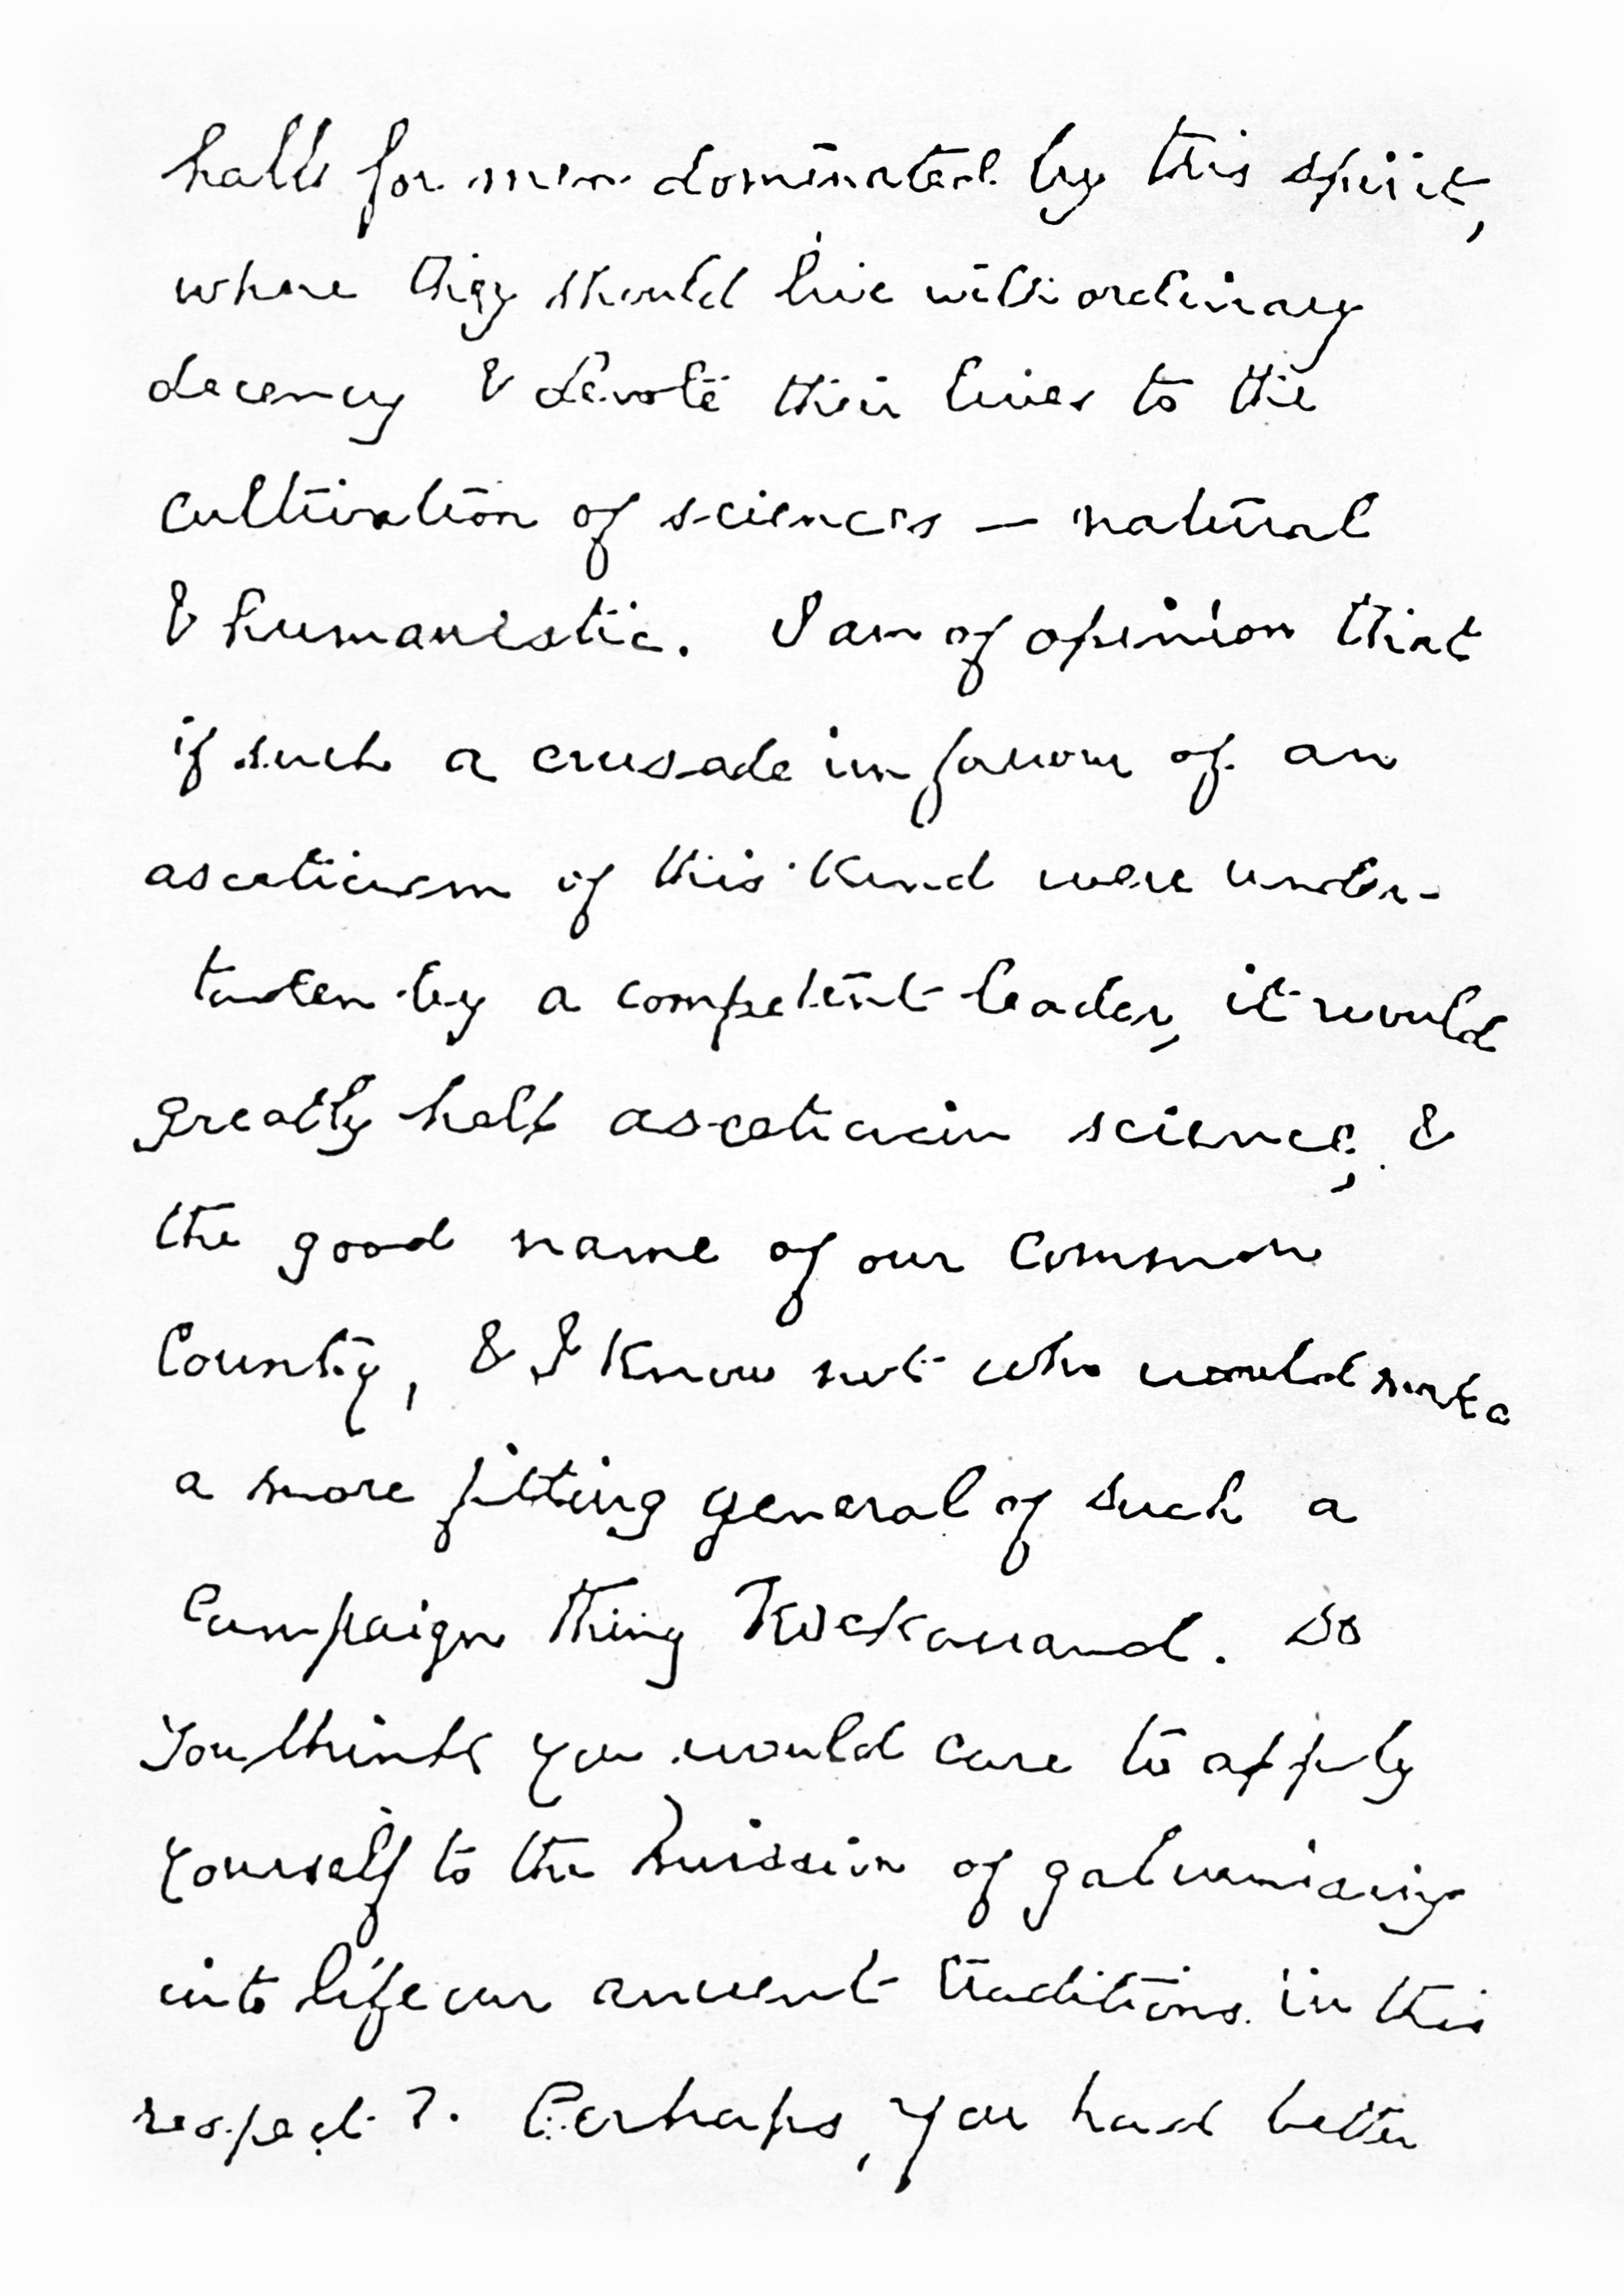 halls for men dominated by this spirit,
where they should live with ordinary
decency & devote their lives to the
cultivation of sciences — natural
& humanistic. I am of opinion that
if such a crusade in favour of an
asceticism of this kind were under-
taken by a competent leader, it would
greatly help asceticism science, &
the good name of our common
Country, & I know not who would make
a more fitting general of such a
Campaign than Vivekanand. Do
You think you would care to apply
Yourself to the mission of galvanising
into life our ancient traditions in this
respect ?. Perhaps, you had better